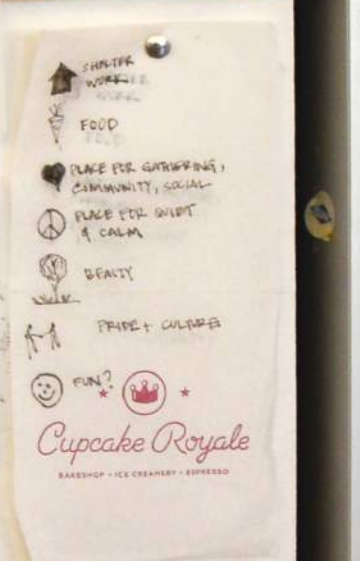 SHELTER
WORK
FOOD
PLACE FOR GATHERING,
COMMUNITY, SOCIAL
PLACE FOR QUIET
& CALM
BEAUTY
PRIDE + CULTURE
FUN?
Cupcake Royale
BAKESHOP • ICE CREAMERY • ESPRESSO